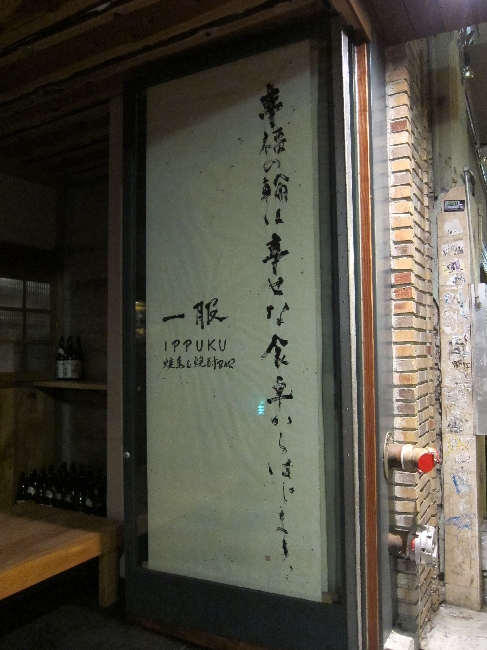 幸福の輪は幸せな食卓からはじまります
一服
IPPUKU
焼鳥と焼酎BAR